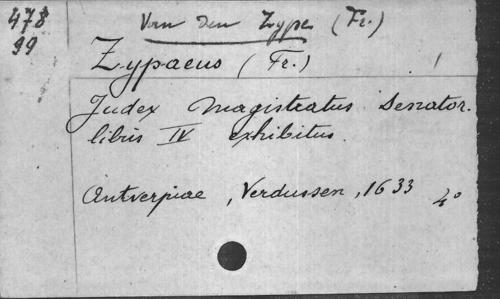 478
99
Van den Zype (Fr.)
Zypaeus (Fr.)
Judex Magistratus Senator.
libris IV exhibitus.
Antverpiae, Verdussen, 1633 4°